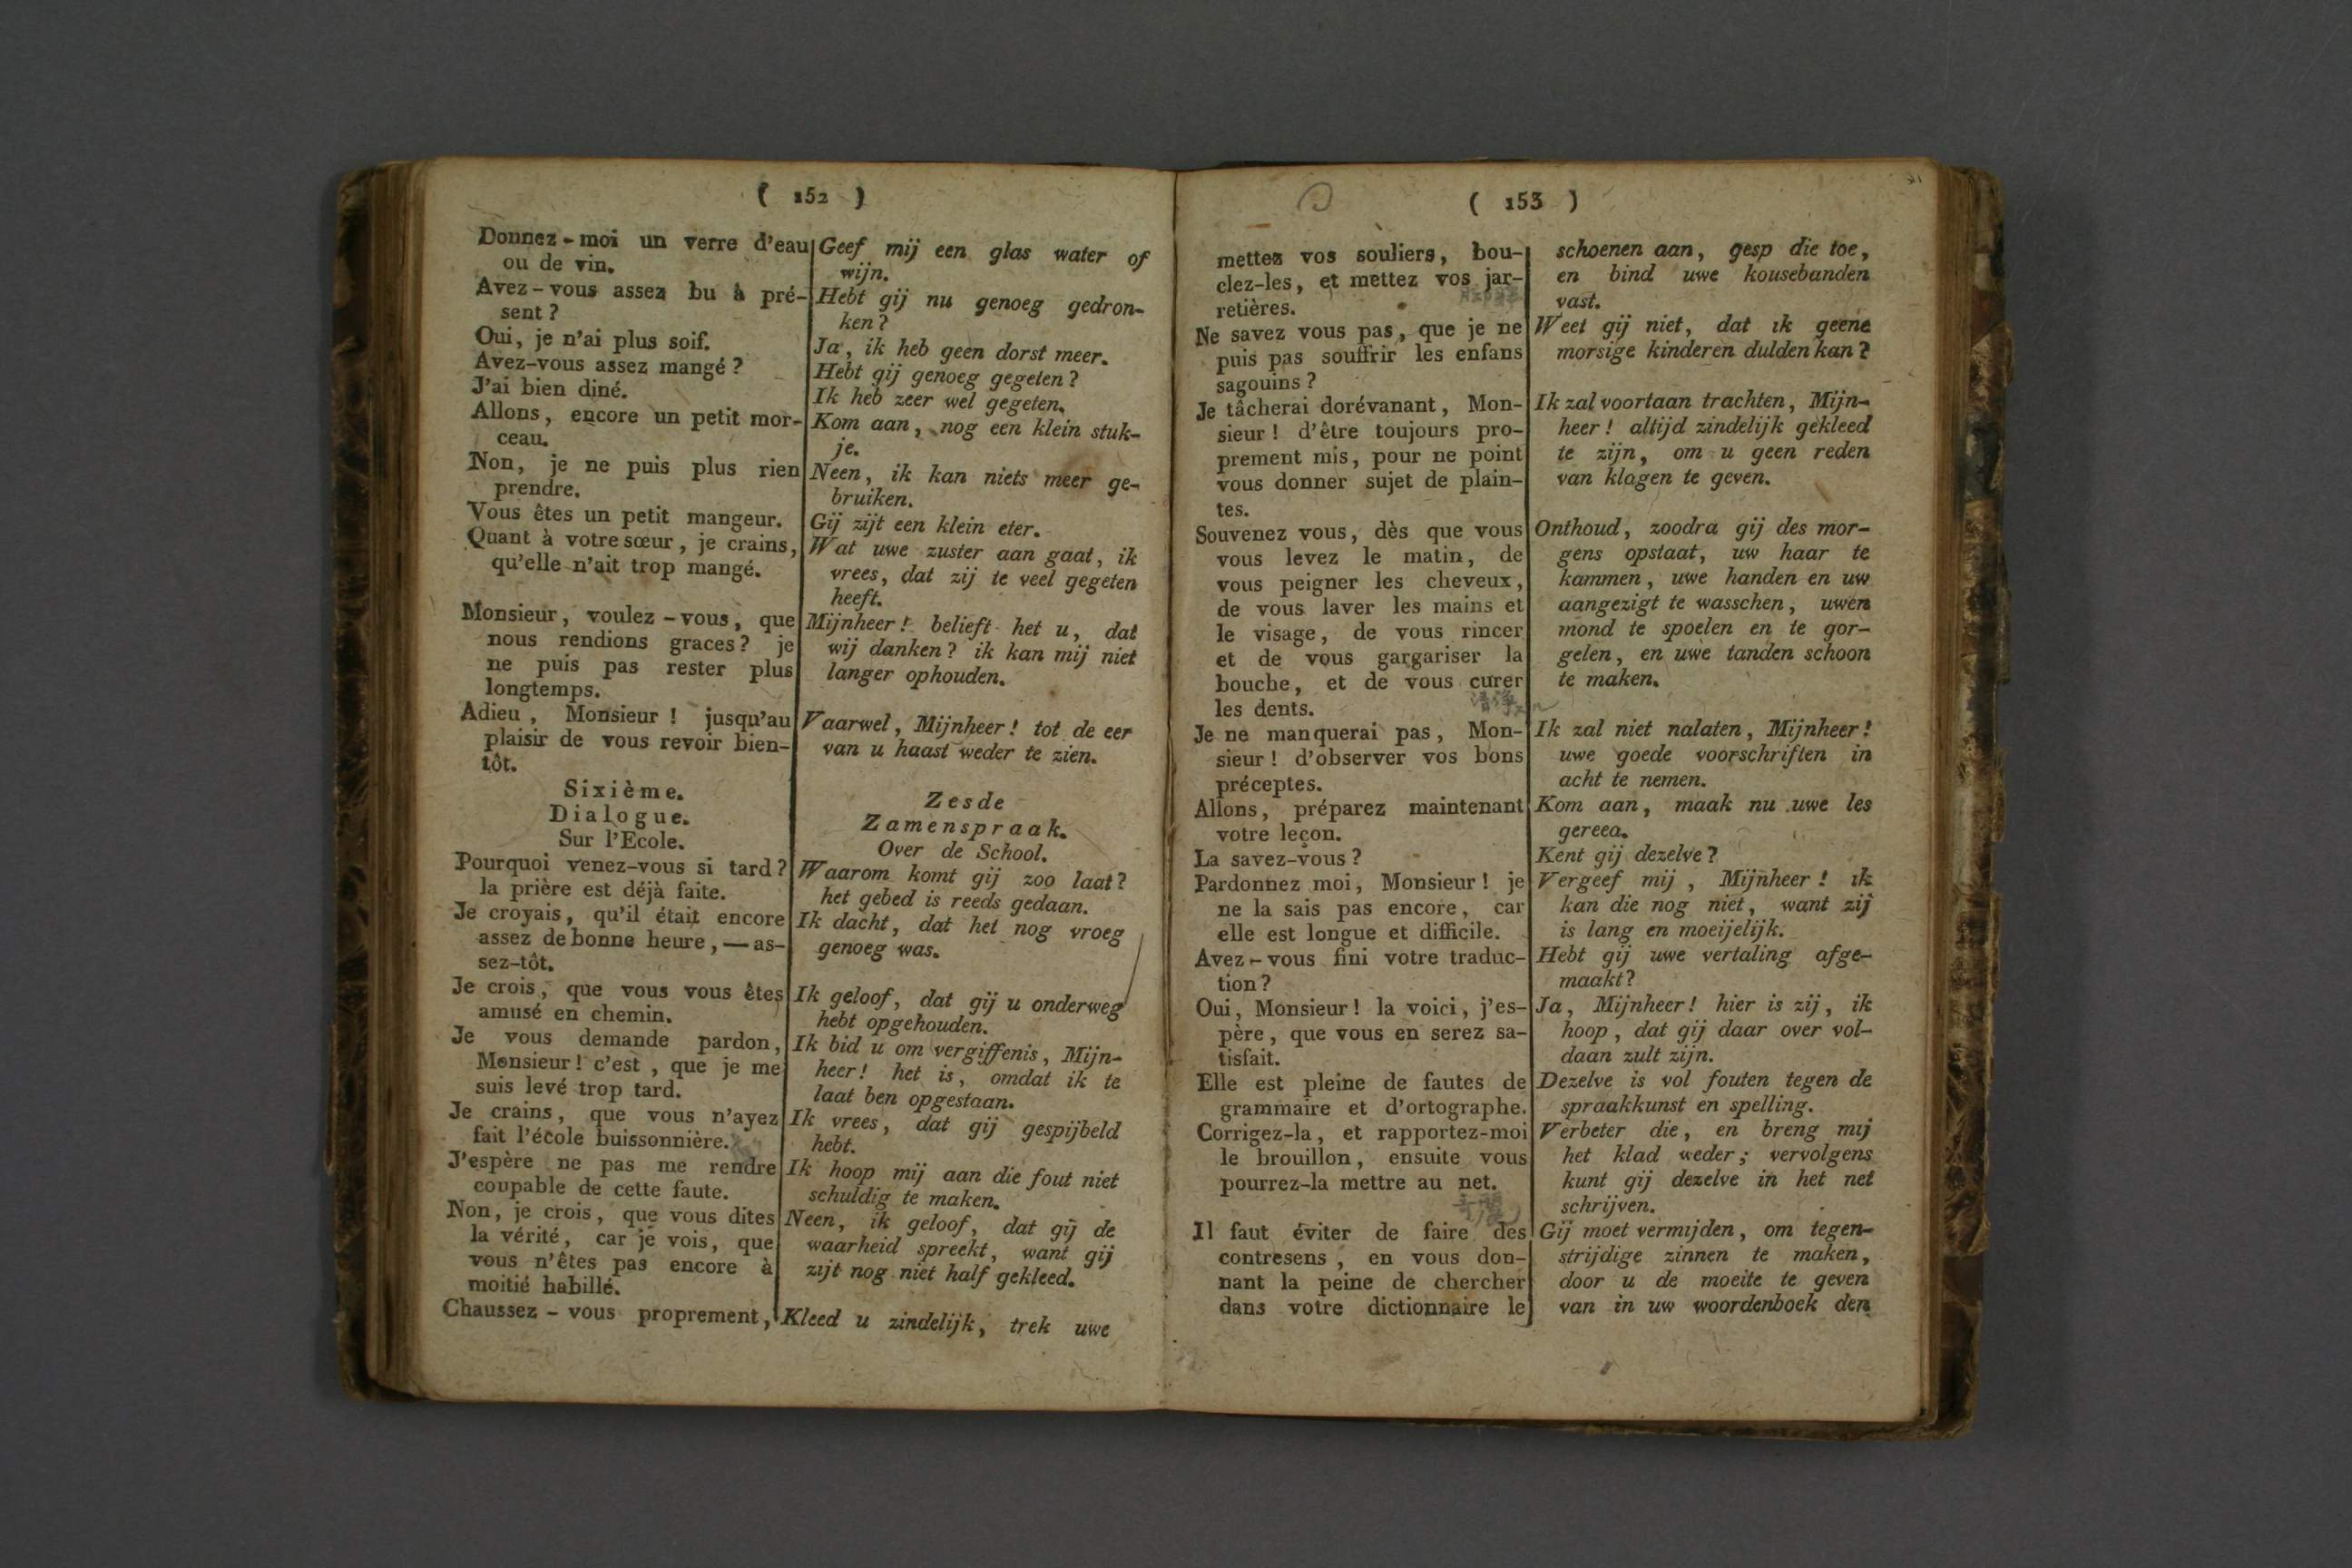 ( 152 )
Donnez-moi un verre d'eau
ou de vin.
Avez-vous assez bu à pré-
sent ?
Oui, je n'ai plus soif.
Avez-vous assez mangé ?
J'ai bien diné.
Allons, encore un petit mor-
ceau.
Non, je ne puis plus rien
prendre.
Vous êtes un petit mangeur.
Quant à votre sœur, je crains,
qu'elle n'ait trop mangé.
Monsieur, voulez-vous, que
nous rendions graces? je
ne puis pas rester plus
longtemps.
Adieu, Monsieur ! jusqu'au
plaisir de vous revoir bien-
tôt.
Sixième.
Dialogue.
Sur l'Ecole.
Pourquoi venez-vous si tard?
la prière est déjà faite.
Je croyais, qu'il était encore
assez de bonne heure, — as-
sez-tôt.
Je crois, que vous vous êtes
amusé en chemin.
Je vous demande pardon,
Monsieur! c'est, que je me
suis levé trop tard.
Je crains, que vous n'ayez
fait l'école buissonnière.
J'espère ne pas me rendre
coupable de cette faute.
Non, je crois, que vous dites
la vérité, car je vois, que
vous n'êtes pas encore à
moitié habillé.
Chaussez-vous proprement,
Geef mij een glas water of
wijn.
Hebt gij nu genoeg gedron-
ken?
Ja, ik heb geen dorst meer.
Hebt gij genoeg gegeten?
Ik heb zeer wel gegeten.
Kom aan, nog een klein stuk-
je.
Neen, ik kan niets meer ge-
bruiken.
Gij zijt een klein eter.
Wat uwe zuster aan gaat, ik
vrees, dat zij te veel gegeten
heeft.
Mijnheer! belieft het u, dat
wij danken? ik kan mij niet
langer ophouden.
Vaarwel, Mijnheer! tot de eer
van u haast weder te zien.
Zesde
Zamenspraak.
Over de School.
Waarom komt gij zoo laat?
het gebed is reeds gedaan.
Ik dacht, dat het nog vroeg
genoeg was.
Ik geloof, dat gij u onderweg
hebt opgehouden.
Ik bid u om vergiffenis, Mijn-
heer! het is, omdat ik te
laat ben opgestaan.
Ik vrees, dat gij gespijbeld
hebt.
Ik hoop mij aan die fout niet
schuldig te maken.
Neen, ik geloof, dat gij de
waarheid spreekt, want gij
zijt nog niet half gekleed.
Kleed u zindelijk, trek uwe
( 153 )
mettez vos souliers, bou-
clez-les, et mettez vos jar-
retières.
Ne savez vous pas, que je ne
puis pas souffrir les enfans
sagouins ?
Je tâcherai dorévanant, Mon-
sieur ! d'être toujours pro-
prement mis, pour ne point
vous donner sujet de plain-
tes.
Souvenez vous, dès que vous
vous levez le matin, de
vous peigner les cheveux,
de vous laver les mains et
le visage, de vous rincer
et de vous gargariser la
bouche, et de vous curer
les dents.
Je ne manquerai pas, Mon-
sieur ! d'observer vos bons
préceptes.
Allons, préparez maintenant
votre leçon.
La savez-vous ?
Pardonnez moi, Monsieur ! je
ne la sais pas encore, car
elle est longue et difficile.
Avez-vous fini votre traduc-
tion?
Oui, Monsieur! la voici, j'es-
père, que vous en serez sa-
tisfait.
Elle est pleine de fautes de
grammaire et d'ortographe.
Corrigez-la, et rapportez-moi
le brouillon, ensuite vous
pourrez-la mettre au net.
Il faut éviter de faire des
contresens, en vous don-
nant la peine de chercher
dans votre dictionnaire le
schoenen aan, gesp die toe,
en bind uwe kousebanden
vast.
Weet gij niet, dat ik geene
morsige kinderen dulden kan?
Ik zal voortaan trachten, Mijn-
heer! altijd zindelijk gekleed
te zijn, om u geen reden
van klagen te geven.
Onthoud, zoodra gij des mor-
gens opstaat, uw haar te
kammen, uwe handen en uw
aangezigt te wasschen, uwen
mond te spoelen en te gor-
gelen, en uwe tanden schoon
te maken.
Ik zal niet nalaten, Mijnheer!
uwe goede voorschriften in
acht te nemen.
Kom aan, maak nu uwe les
gereed.
Kent gij dezelve?
Vergeef mij, Mijnheer! ik
kan die nog niet, want zij
is lang en moeijelijk.
Hebt gij uwe vertaling afge-
maakt?
Ja, Mijnheer! hier is zij, ik
hoop, dat gij daar over vol-
daan zult zijn.
Dezelve is vol fouten tegen de
spraakkunst en spelling.
Verbeter die, en breng mij
het klad weder; vervolgens
kunt gij dezelve in het net
schrijven.
Gij moet vermijden, om tegen-
strijdige zinnen te maken,
door u de moeite te geven
van in uw woordenboek den